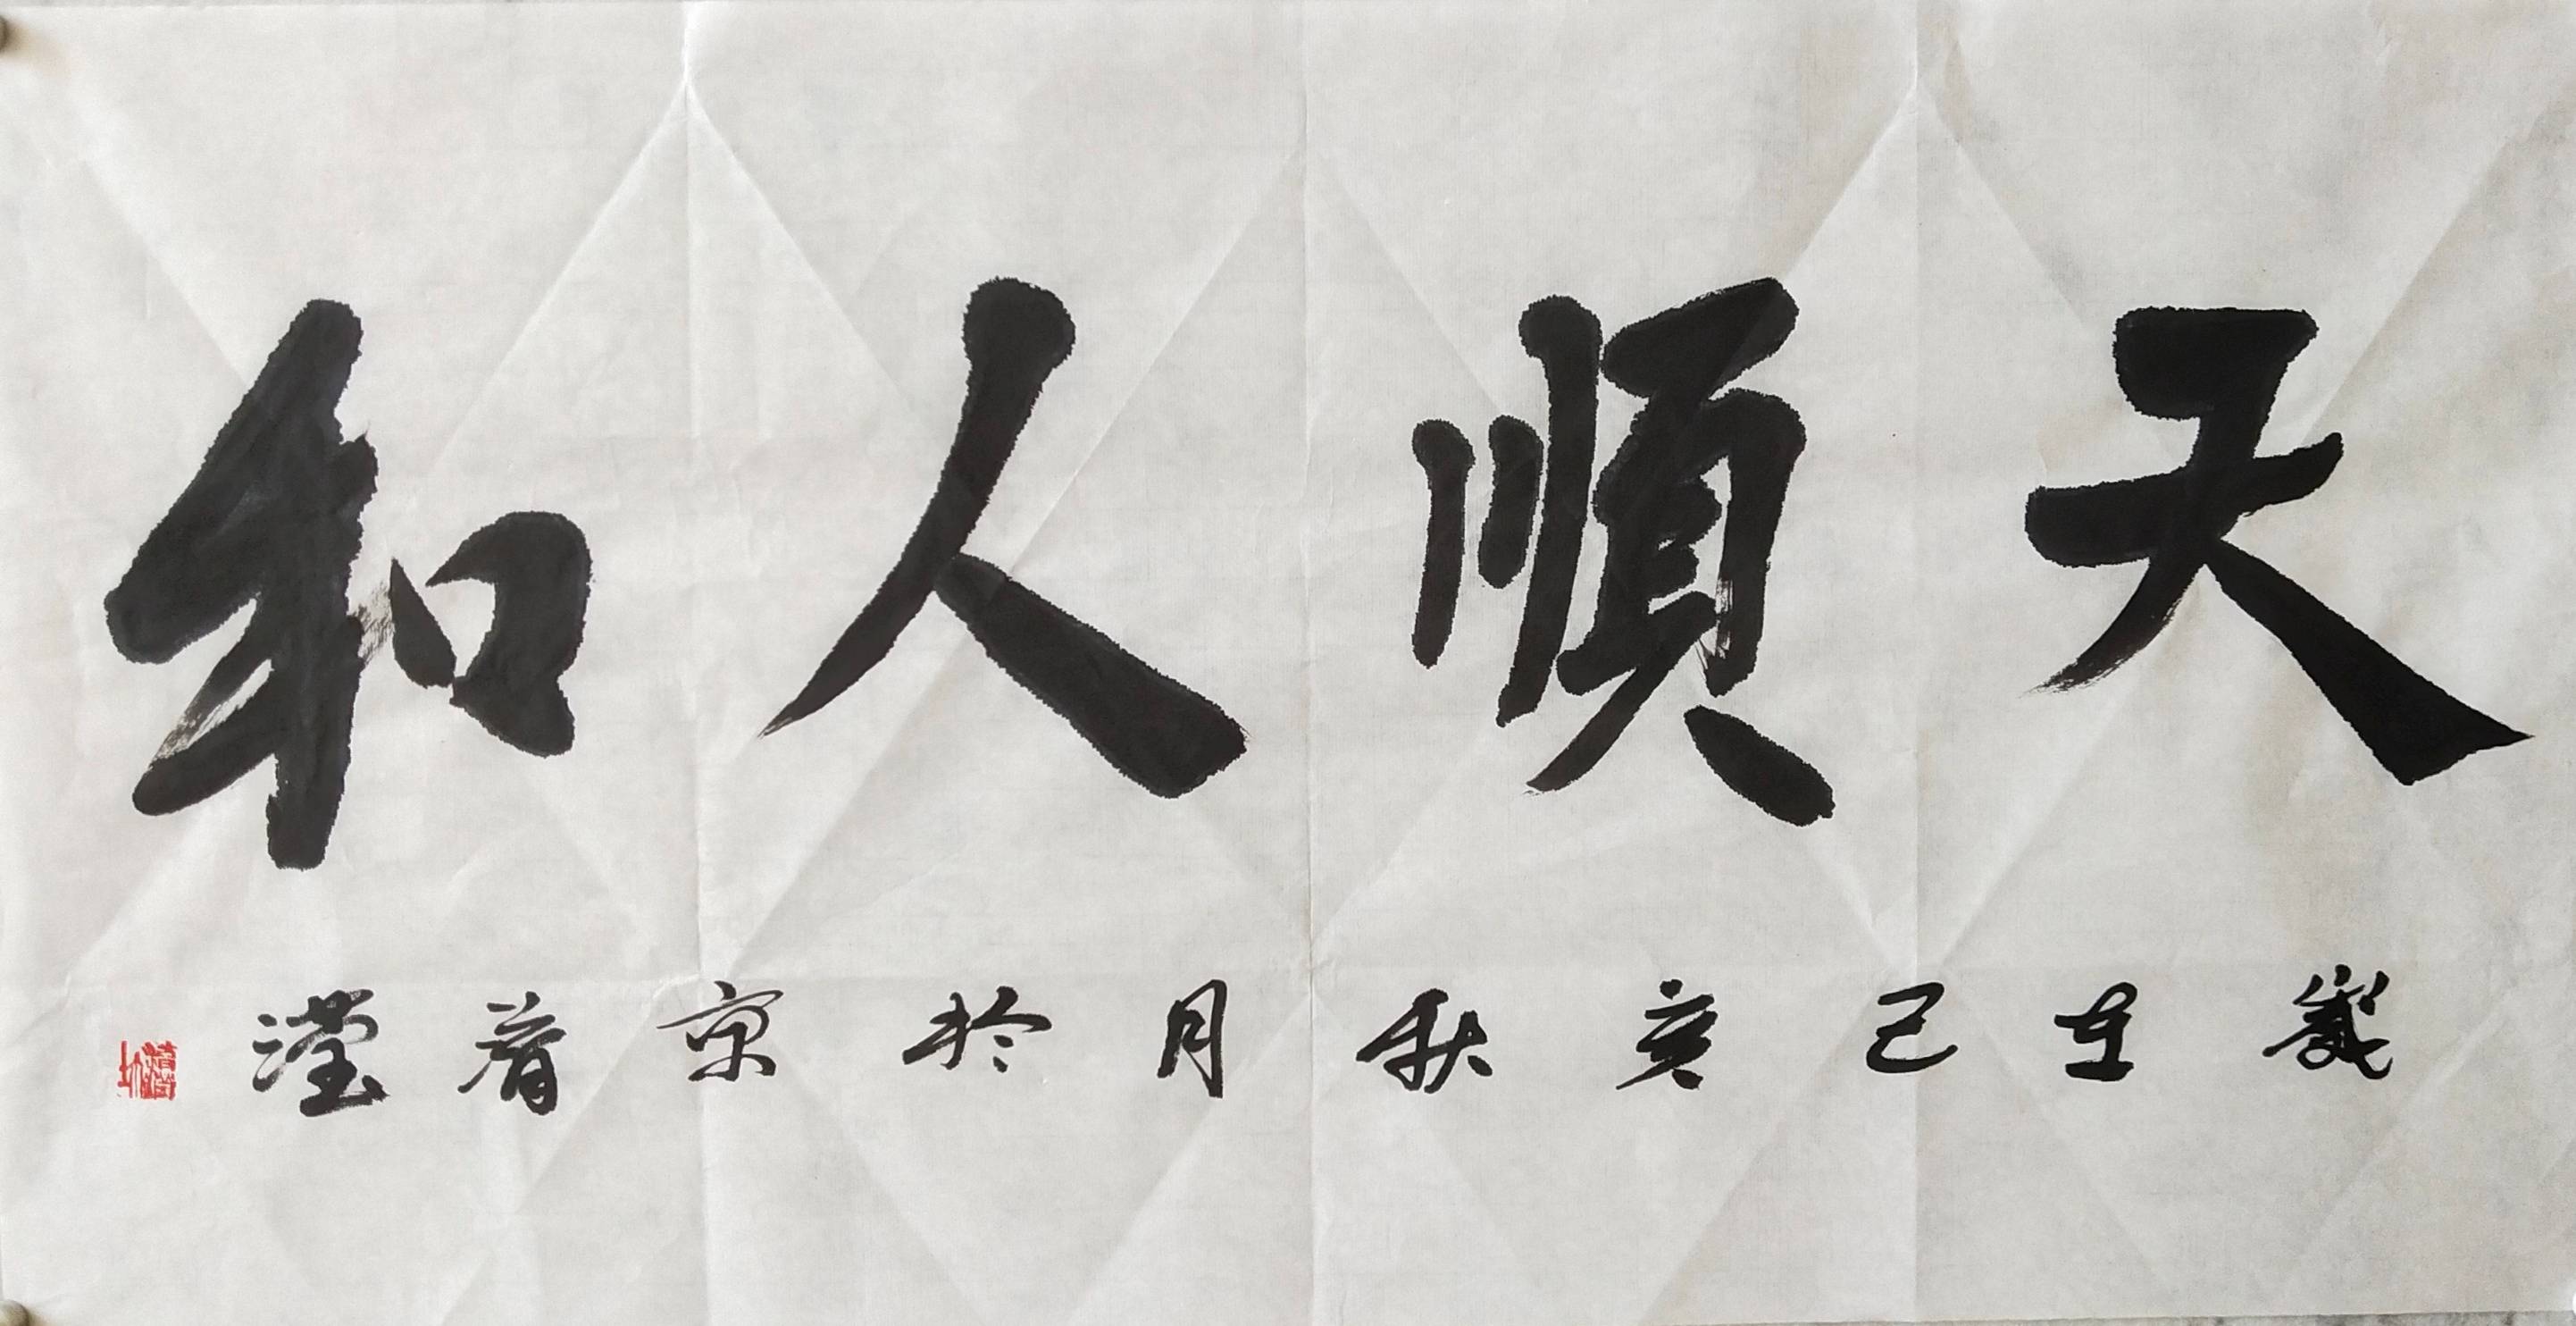 天順人和
歲在己亥秋月於京着瀅